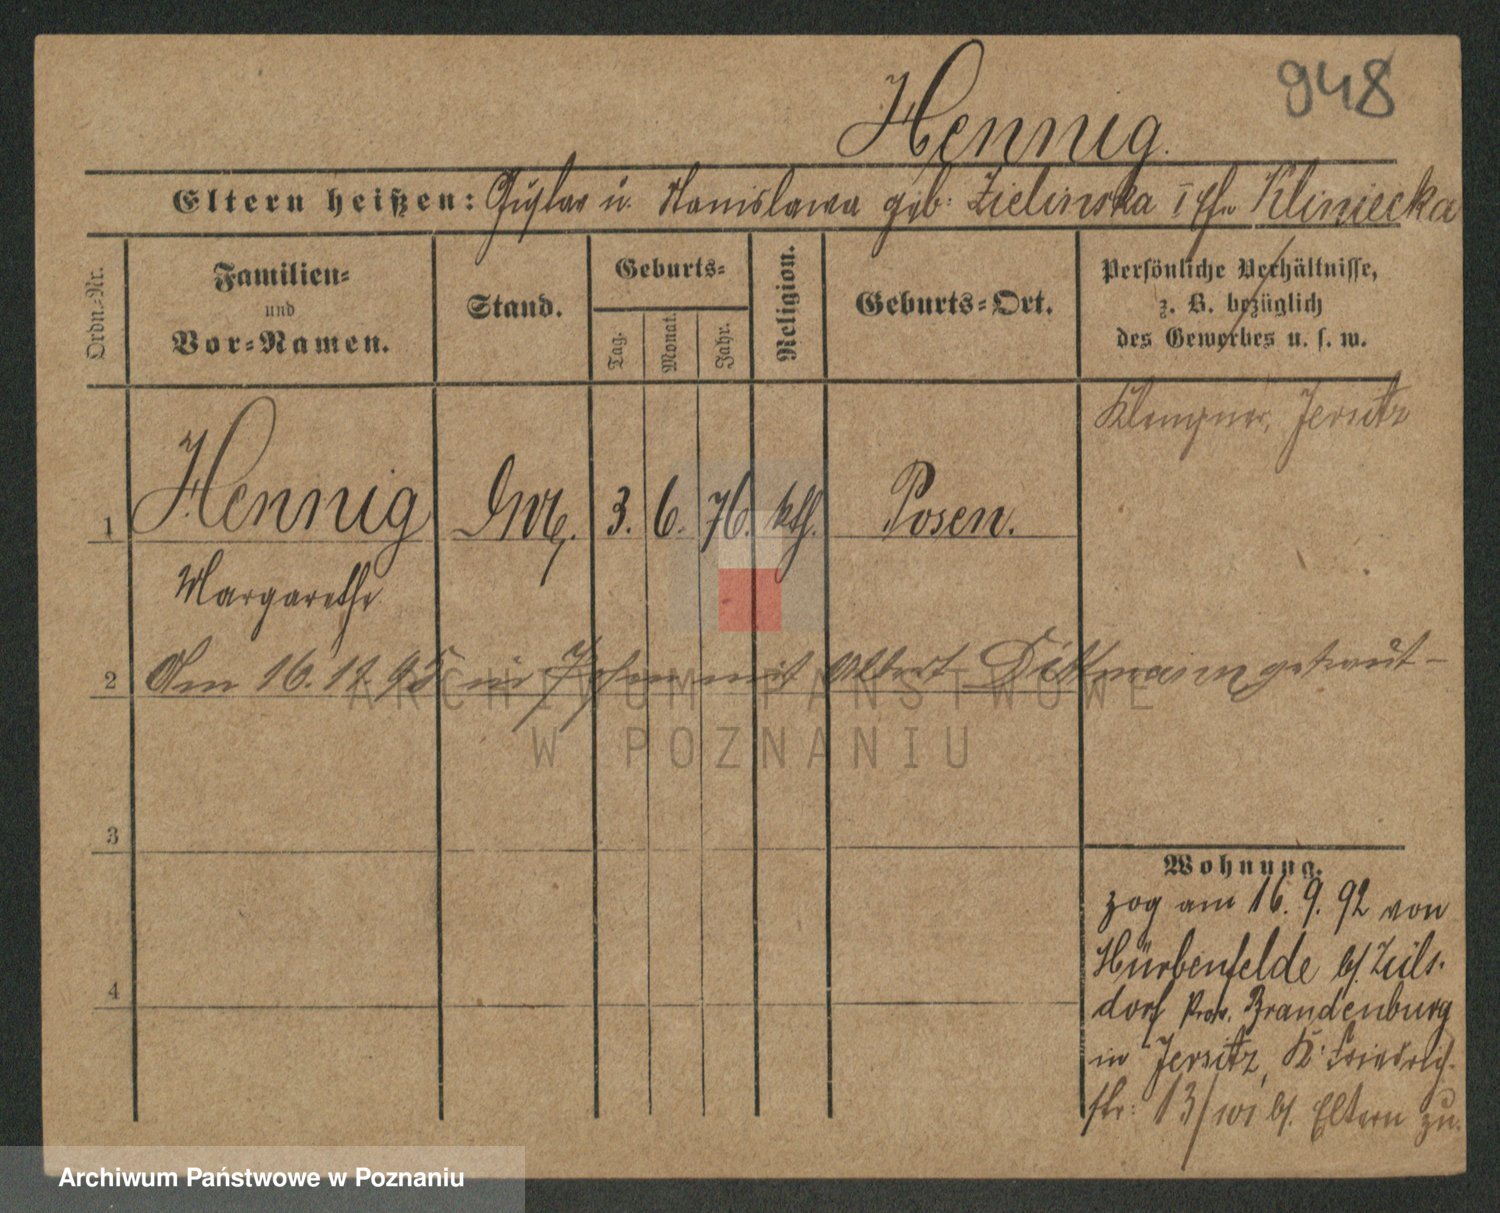 948
Hennig.
Eltern heißen: Gustav u. Stanislawa geb: Zielinska Kliniecka
Ordn.-Nr.
Familien-
und
Vor-Namen.
Stand.
Geburts-
Tag.
Monat.
Jahr.
Religion.
Geburts-Ort.
Persönliche Verhältnisse,
z. B. bezüglich
des Gewerbes u. s. w.
Klempner, Jersitz
1
Hennig
3. 6. 76. kth. Posen.
Margarethe
2
Am 16. 11. 95 in mit Albert Dittmann getraut-
3
4
Wohnung.
zog am 16. 9. 92 von
Hürbenfelde b/ Züls-
dorf Prov. Brandenburg
in Jersitz, K. Friedrich-
str: 13/ b/ Eltern zu.
ARCHIWUM PAŃSTWOWE
W POZNANIU
Archiwum Państwowe w Poznaniu